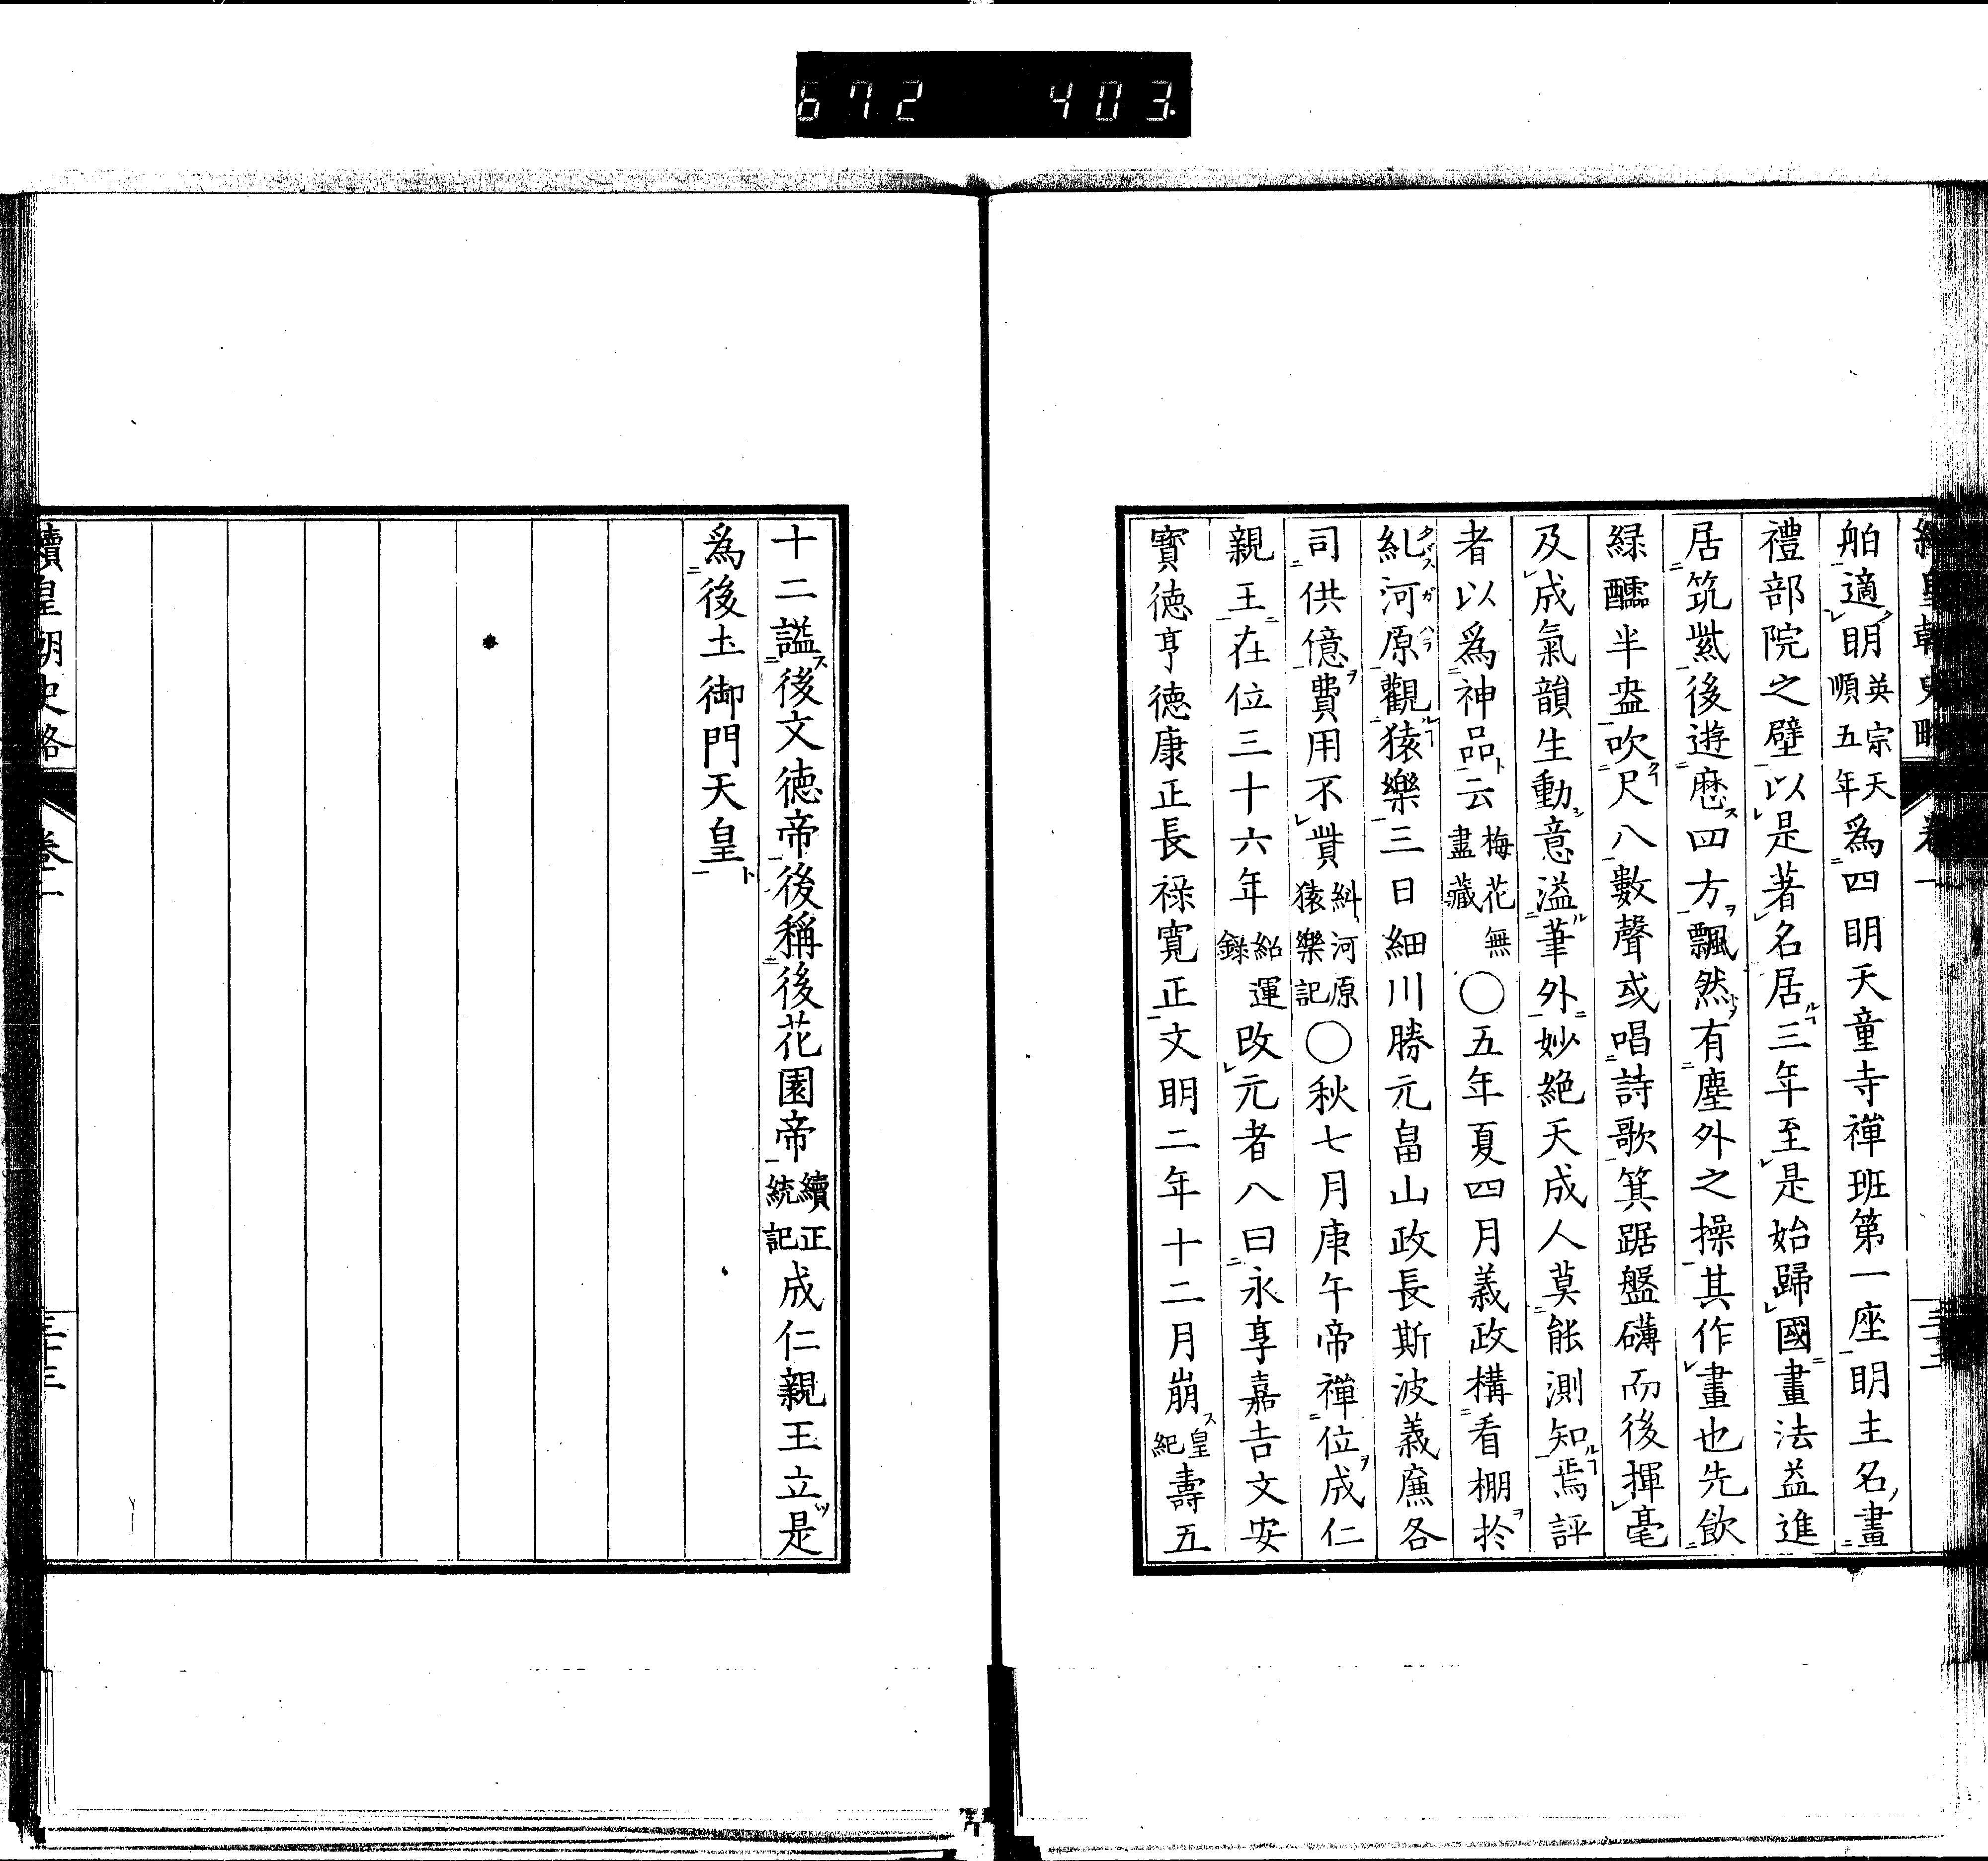 672 403.
續皇朝史略 卷一 三十二
舶適明英宗天順五年爲四明天童寺禪班第一座明主名畫
禮部院之壁以是著名居三年至是始歸國畫法益進
居筑紫後遊歷四方飄然有塵外之操其作畫也先飮
緑醽半盎吹尺八數聲或唱詩歌箕踞盤礴而後揮毫
及成氣韻生動意溢筆外妙絶天成人莫能測知焉評
者以爲神品云梅花無盡藏〇五年夏四月義政構看棚於
糺河原觀猿樂三日細川勝元畠山政長斯波義廉各
司供億費用不貲糾河原猿樂記〇秋七月庚午帝禪位成仁
親王在位三十六年紹運錄改元者八曰永享嘉吉文安
寶德享德康正長祿寬正文明二年十二月崩皇紀壽五
十二謚後文德帝後稱後花園帝續正統記成仁親王立是
爲後土御門天皇
續皇朝史略 卷一 三十三